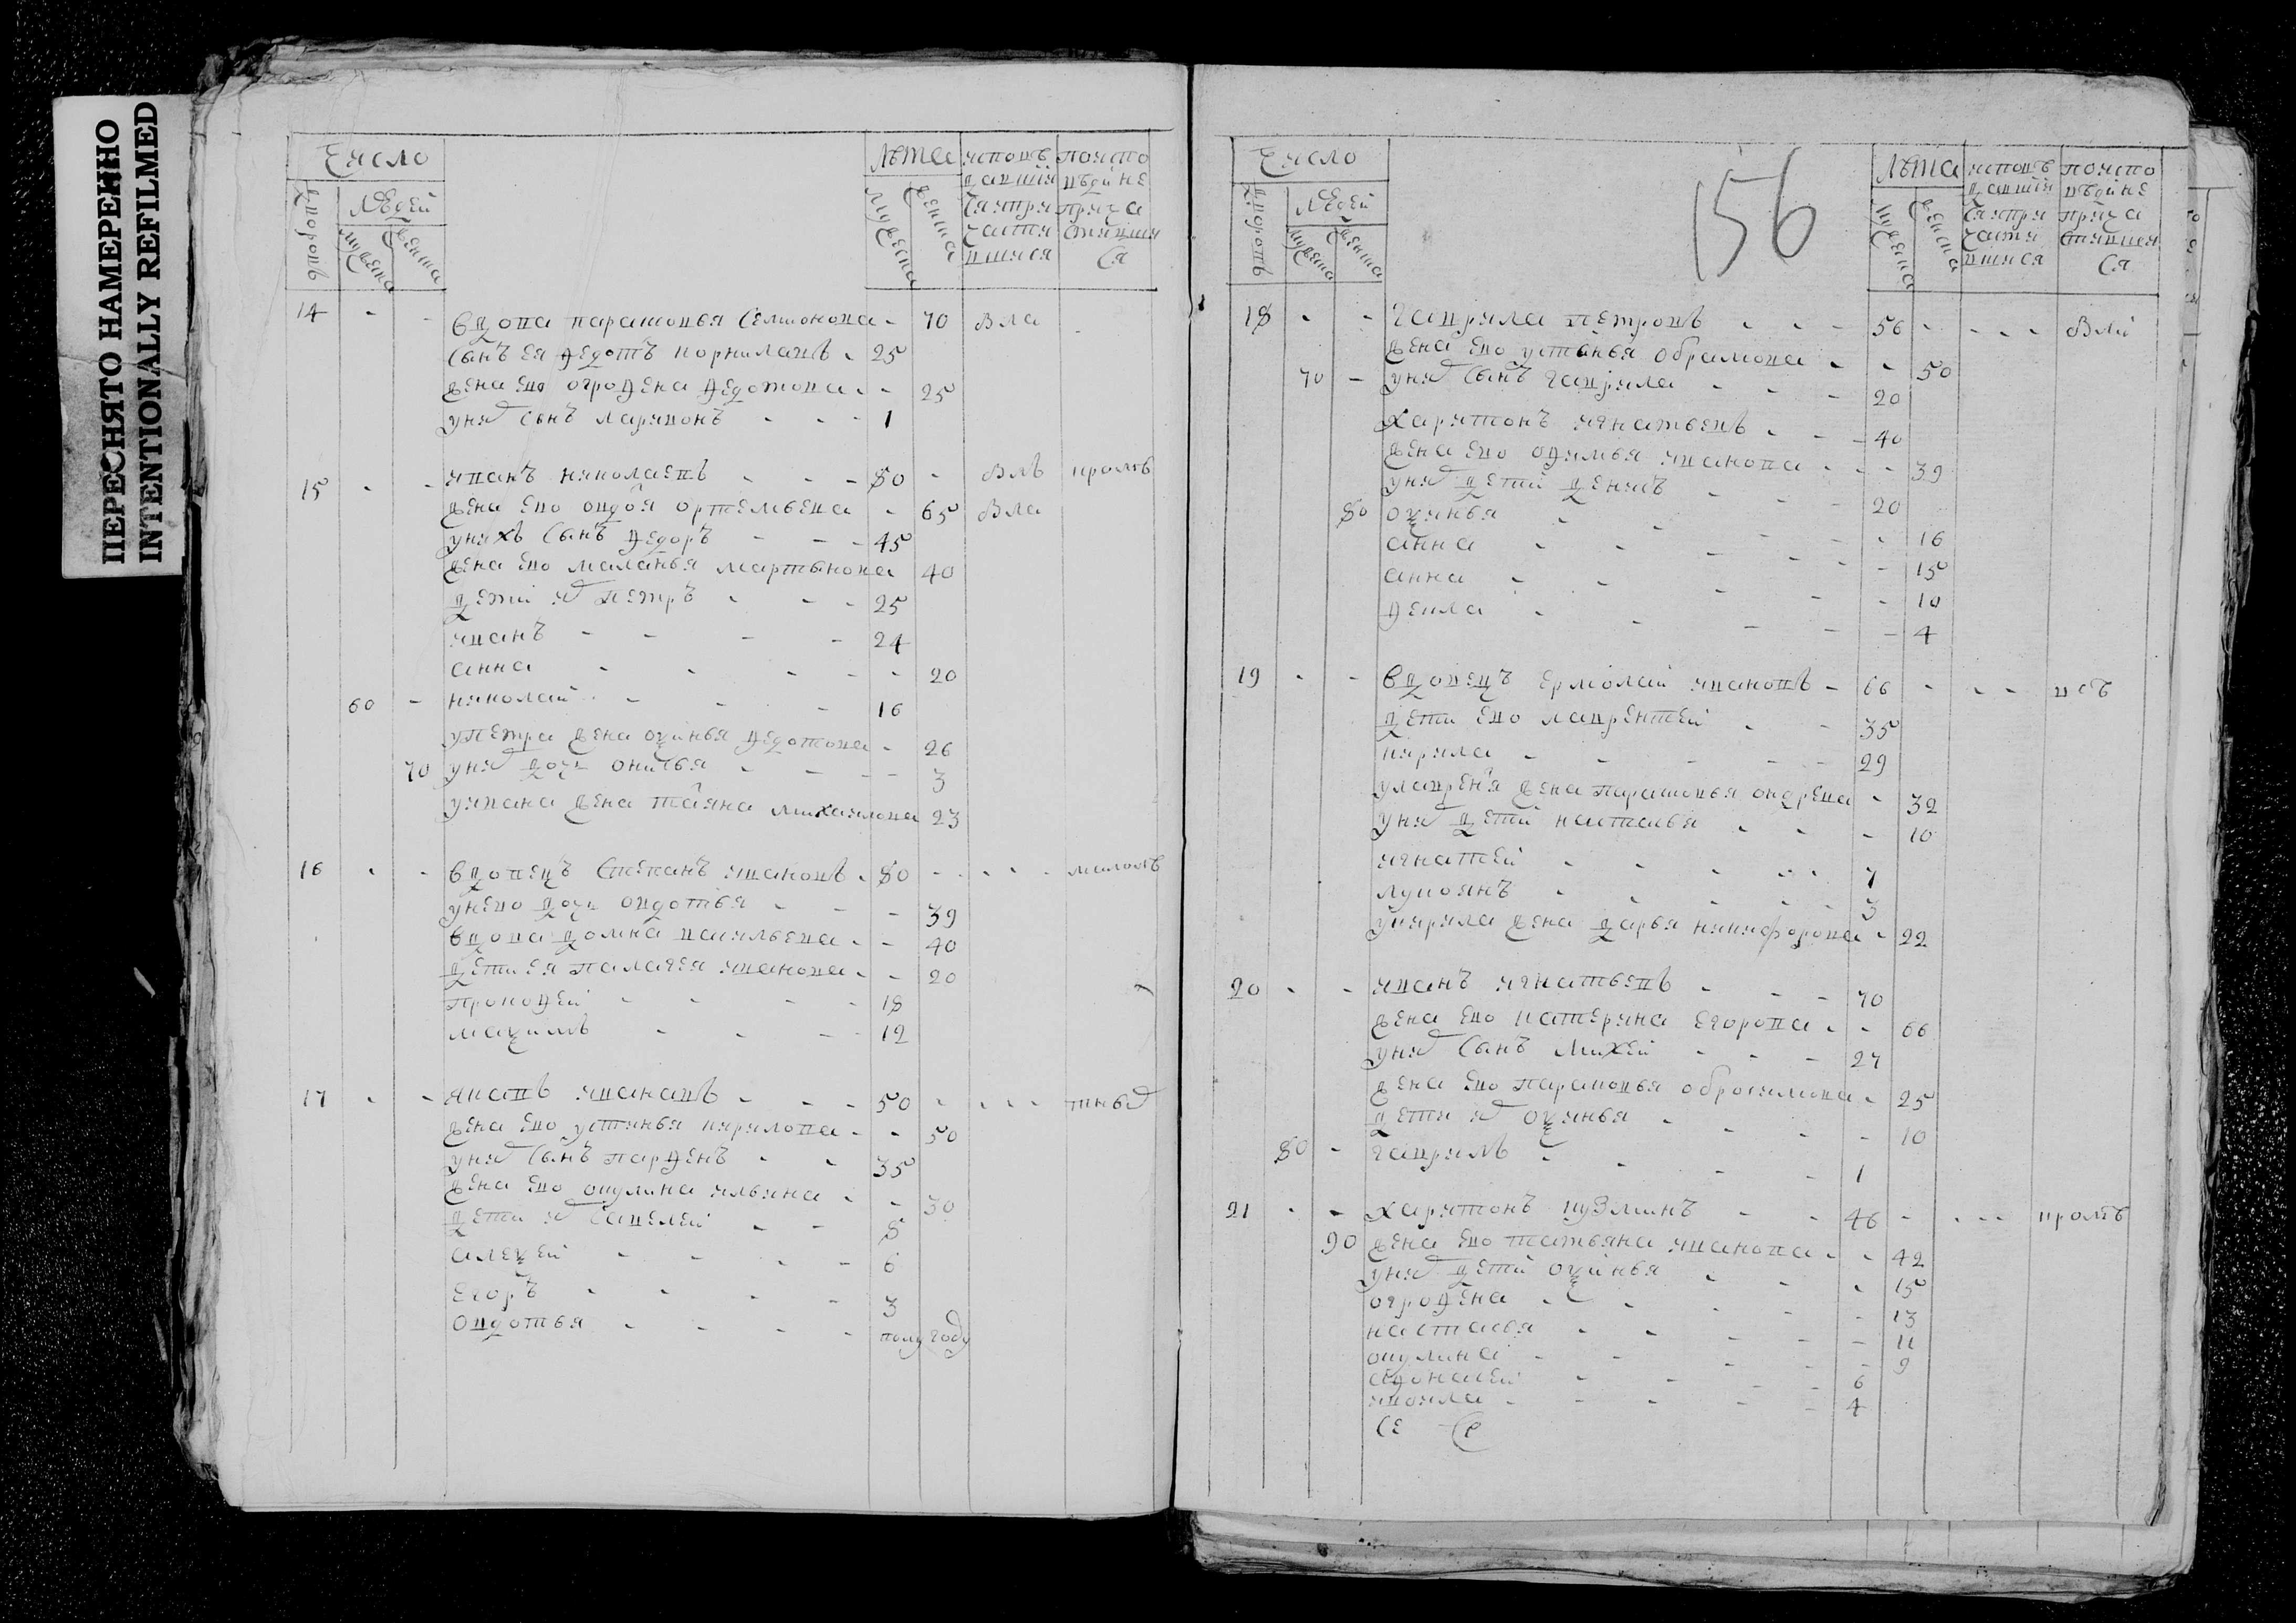 ПЕРЕСНЯТО НАМЕРЕННО
INTENTIONALLY REFILMED
Число
дворовъ
людей
мужеска
женска
лѣта
мужеска
женска
исповѣ
давшия
ся и при
части
вшияся
по испо
вѣди не
прича
стивши
ся
14 - - вдова парасковья семионова - 70 Вла -
сынъ ея федотъ корнилавъ - 25
жена ево огрофена федотова - - 25
у нея сынъ ларивонъ - - - 1
15 - - иванъ николаевъ - - - 80 - Влъ
жена ево овдоя ортемьева - 65 Вла
у нихъ сынъ федоръ - - - 45
жена ево маланья мартынова 40
дети ихъ петръ - - - 25
иванъ - - - - 24
анна - - - - - 20
60 - николай - - - - 16
у петра жена оксинья федотова - 26
70 у нея дочь онисья - - - - 3
у ивана жена татияна михаилова 23
16 - - вдовецъ степанъ ивановъ - 80 - - - -
у нево дочь овдотья - - - 39
вдова домна васильева - - 40
дети ея палагея иванова - - 20
прокофей - - - - 18
максимъ - - - - 12
17 - - яковъ ивановъ - - - 50 - - - -
жена ево устинья кирилова - - 50
у нея сынъ парфенъ - - 35
жена ево окулина ильина - - 30
дети ихъ савелей - - 8
алексей - - - - 6
егоръ - - - - 3
овдотья - - - - полугоду
156
Число
дворовъ
людей
мужеска
женска
лѣта
мужеска
женска
исповѣ
давшия
ся и при
части
вшияся
по испо
вѣди не
прича
стившия
ся
18 - - гаврила петровъ - - - 56 - - - -
жена ево устинья обрамова - - 50
70 - у нея сынъ гаврила - - - 20
харитонъ игнатьевъ - - - 40
жена ево офимья иванова - - - 39
у нея дети денисъ - - - 20
80 оксинья - - - - - 16
анна - - - - - 15
анна - - - - - 10
фекла - - - - - 4
19 - - вдовецъ ермолай ивановъ - 66 - - -
дети ево лаврентей - - 35
кирила - - - - - 29
у лаврентия жена парасковья ондрева - 32
у нея дети настасья - - - 10
игнатей - - - - - 7
лукоянъ - - - - - 3
у кирила жена дарья никифорова - 22
20 - - иванъ игнатьевъ - - - 70
жена ево катерина егорова - - 66
у нея сынъ михей - - - 27
жена ево парасковья обросимова - 25
дети ихъ оксинья - - - - 10
80 - гаврилъ - - - - 1
21 - - харитонъ кузминъ - - 46 - - - -
90 жена ево татьяна иванова - - 42
у нея дети оксинья - - - 15
огрофена - - - - - 13
настасья - - - - - 11
окулина - - - - - 9
афонасей - - - - 6
ивоила - - - - - 4